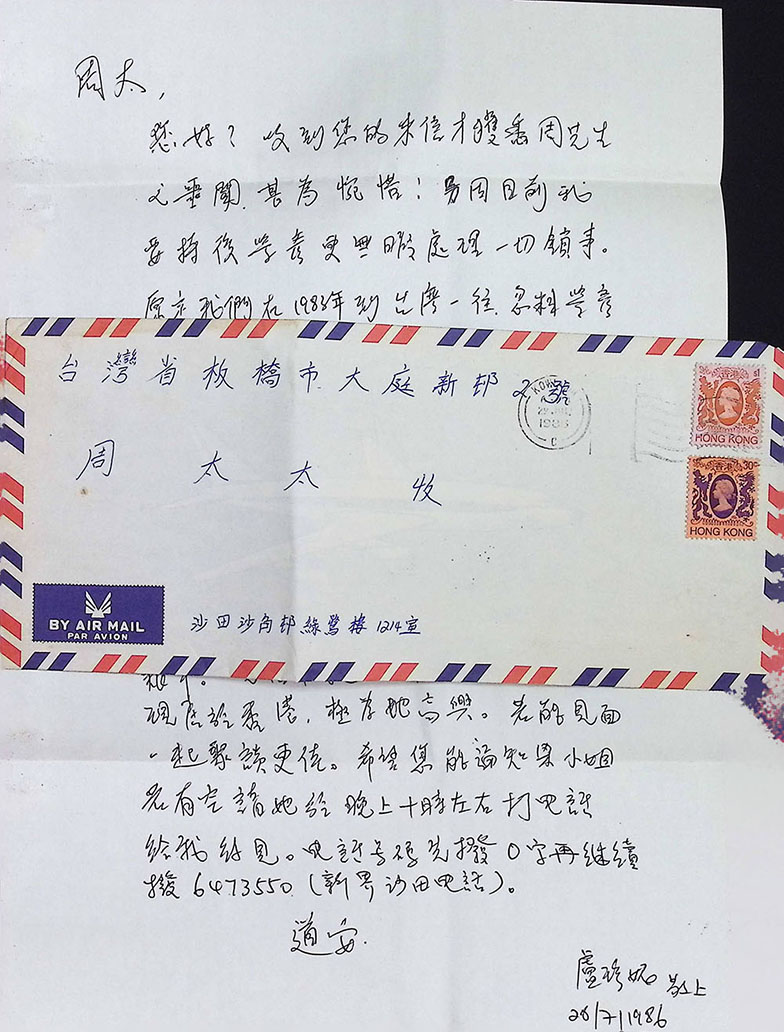 周太,
您好？收到您的來信才獲悉周先生
之噩聞,甚為惋惜！另因日前我
要持後學業更無暇處理一切鎖事。
原定我們在1983年到台灣一往,忽料
台灣省板橋市大庭新邨2號
KOWLOON
1986
C
香港
$1
HONG KONG
周太太收
香港
30c
HONG KONG
BY AIR MAIL
PAR AVION
沙田沙角邨綠鷺樓1214室
現居於香港,極為她高興。若能見面
一起聚談更佳。希望您能通知梁小姐
若有空請她於晚上十時左右打电話
給我約見。电話号碼先撥0字再继續
撥6473550(新界沙田电話)。
道安.
盧珍妮 敬上
28/7/1986